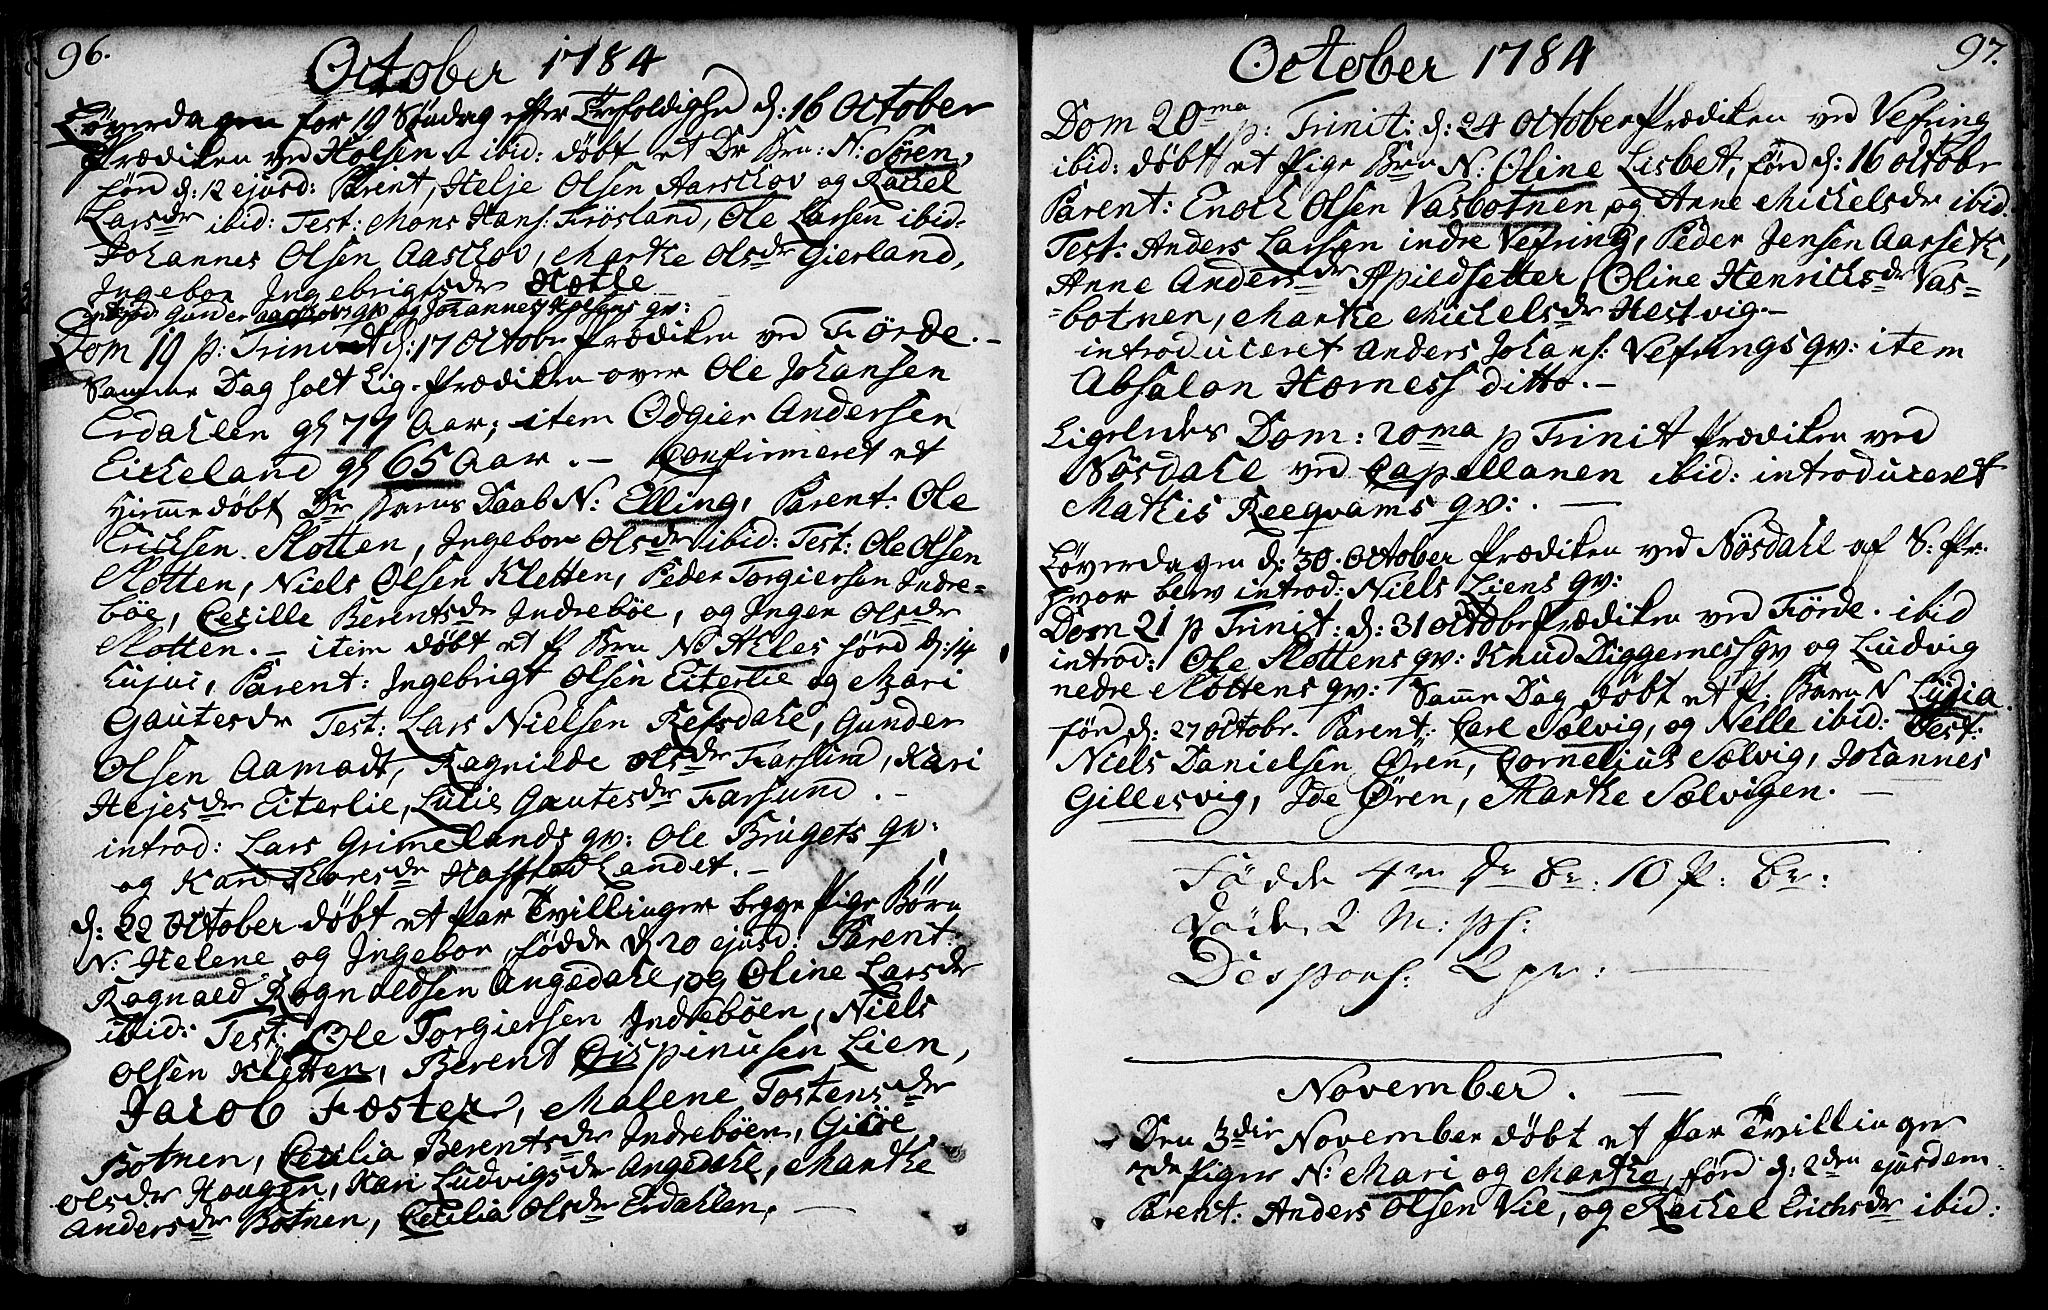 96.
October 1784
Løverdagen for 19 Søndag efter Trefoldighed d: 16 October
Prædiken ved Holsen ibid: døbt et Dr Brn: N: Søren,
føed d: 12 ejusd: Parent, Helje Olsen Aarschov og Rachel
Larsdr ibid: Test: Mons Hans: Frøsland, Ole Larsen ibid:
Johannes Olsen Aaschov, Marthe Olsdr Gierland,
Ingebor Ingebrigtsdr Hatle
introd Gunder Aarschovs qv og Johannes Holsens qv:
Dom 19 p: Trinit d: 17 Octobr Prædiken ved Førde. -
Samme Dag holt Lig-Prædiken over Ole Johansen
Erdahlen gl 77 Aar; item Odgier Andersen
Eickeland gl 65 Aar. - Confirmeret et
Hiemmedøbt Dr Barns Daab N: Elling, Parent: Ole
Erichsen Slotten, Ingebor Olsdr ibid: Test: Ole Olsen
Slotten, Niels Olsen Kletten, Peder Torgiersen Indre-
böe, Cecille Berentsdr Indreböe, og Inger Olsdr
Slotten. - item døbt et P Brn N: Ahles førd d: 14
hujus, Parent: Ingebrigt Olsen Eiterlie og Mari
Gautesdr Test: Lars Nielsen Refsdahl, Gunder
Olsen Aamodt, Ragnilde Olsdr Farsund, Kari
Hejesdr Eiterlie, Lucie Gautesdr Farsund. -
introd: Lars Grimelands qv: Ole Brugets qv:
og Kari Thoresdr Hafstadlandet. -
d: 22 October døbt et Par Tvillinger begge Pige Børn
N: Helene og Ingebor, fødde d 20 ejusd: Parent:
Ragnald Ragnaldsen Angedahl, og Oline Larsdr
ibid: Test: Ole Torgiersen Indrebøen, Niels
Olsen Kletten, Berent Crispinusen Lien,
Jacob Foster, Malene Tostensdr
Botnen, Cecilia Berentsdr Indrebøen, Gicöe
Olsdr Hougen, Kari Ludvigsdr Angedahl, Marthe
Andersdr Botnen, Cecilia Olsdr Erdahlen. -
97.
October 1784
Dom 20ma p: Trinit: d: 24 October Prædiken ved Vefring
ibid: døbt et Pige Brn N: Oline Lisbet, førd d: 16 Octobr
Parent: Enoch Olsen Vasbotnen og Anne Michelsdr ibid.
Test: Anders Larsen indre Vefring, Peder Jensen Aarseth,
Anne Andersdr Spieldsetter, Oline Henrichsdr Vas-
=botnen, Marthe Michelsdr Hestvig -
introduceret Anders Johans: Vefrings qv: item
Absalon Horness ditto. -
Ligeledes Dom: 20ma p Trinit Prædiken ved
Nösdahl ved Capellanen ibid: introduceret
Mathis Reeqvams qv: . -
Løverdagen d: 30 October Prædiken ved Nösdahl af S: Pr.
hvor blev introd: Niels Liens qv:
Dom 21 p Trinit: d: 31 Octobr Prædiken ved Förde. ibid
introd: Ole Slottens qv: Knud Diggerness qv og Ludvig
nedre Slottens qv: Samme Dag døbt et P: Barn N Lydia.
førd d: 27 Octobr. Parent: Carl Solvig, og Nelle ibid: Test:
Niels Danielsen Ören, Cornelius Sælvig, Johannes
Gillesvig, Ide Øren, Marthe Sælvigen. -
Födde 4re Dr Br: 10 P: Br:
Døde 2 M: ps:
Despons: 2 pr: -
November. -
Den 3die November døbt et Par Tvillinger
Piger N: Mari og Marthe, førd d: 2den ejusdem
Parent: Anders Olsen Vie, og Rachel Erichsdr ibid: